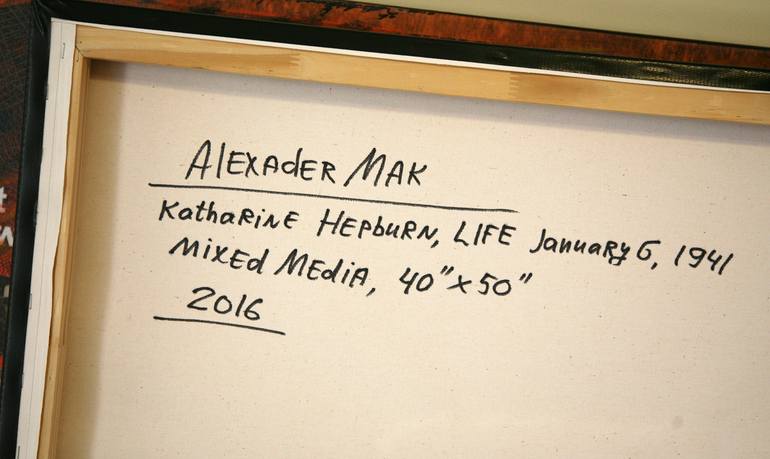 AlExAdER MAK
KathaRiNE HEpbuRN, LIFE JanuaRy 6, 1941
MixEd MEdiA, 40" x 50"
2016